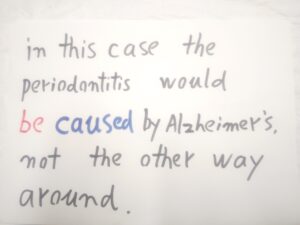 in this case the
periodontitis would
be caused by Alzheimer's,
not the other way
around.